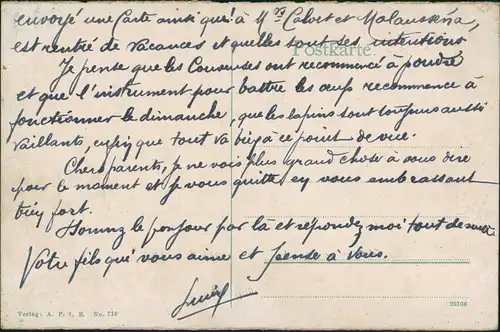 envoyé une Carte ainsi que! à Mrs Calvet et Malausséna,
est rentré de vacances et quelles sont ses intentions
Postkarte.
Je pense que les Couseuses ont recommencé à poudre
et que l'instrument pour battre les œufs recommence à
fonctionner le dimanche, que les lapins sont toujours aussi
vaillants, enfin que tout va bien à ce point de vue.
Chers parents, je ne vois plus grand chose à vous dire
pour le moment et je vous quitte en vous embrassant
bien fort.
Donnez le bonjour par là et répondez moi tout de suite
Votre fils qui vous aime et pense à Vous.
Verlag: A. P. i. E. No. 716
29168